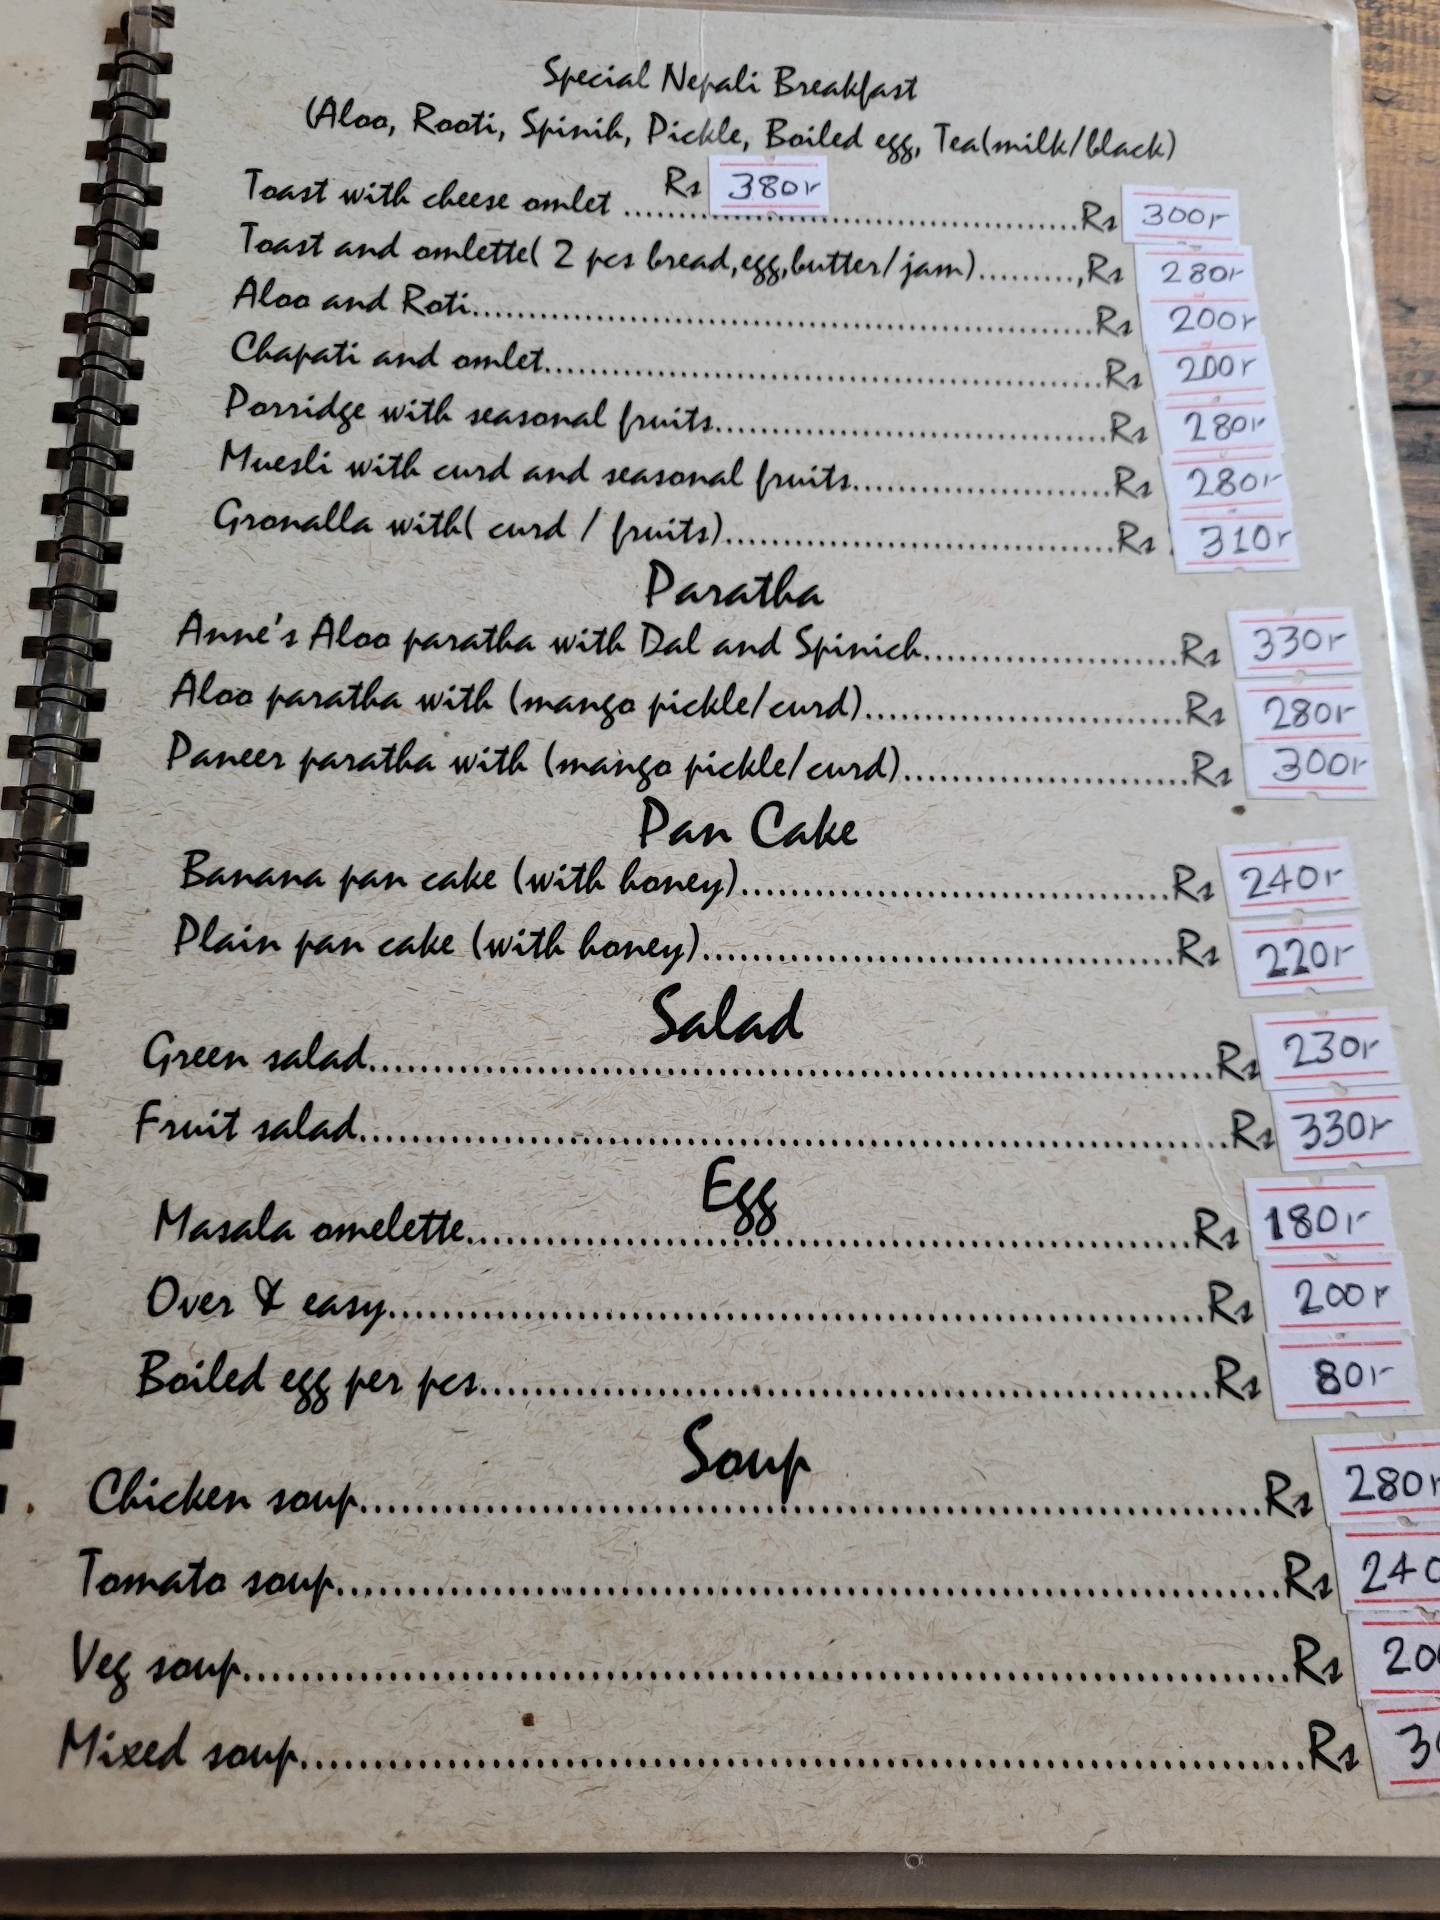 Special Nepali Breakfast
(Aloo, Rooti, Spinih, Pickle, Boiled egg, Tea(milk/black)
Rs 380r
Toast with cheese omlet ........................................Rs 300r
Toast and omlette( 2 pcs bread,egg,butter/jam).........,Rs 280r
Aloo and Roti.......................................................Rs 200r
Chapati and omlet..................................................Rs 200r
Porridge with seasonal fruits...................................Rs 280r
Muesli with curd and seasonal fruits.......................Rs 280r
Gronalla with( curd / fruits)...................................Rs 310r
Paratha
Anne's Aloo paratha with Dal and Spinich......................Rs 330r
Aloo paratha with (mango pickle/curd)...........................Rs 280r
Paneer paratha with (mango pickle/curd)........................Rs 300r
Pan Cake
Banana pan cake (with honey).....................................Rs 240r
Plain pan cake (with honey)........................................Rs 220r
Salad
Green salad......................................................................Rs 230r
Fruit salad........................................................................Rs 330r
Egg
Masala omelette...........................................................Rs 180r
Over & easy..................................................................Rs 200r
Boiled egg per pcs..........................................................Rs 80r
Soup
Chicken soup.........................................................................Rs 280r
Tomato soup..........................................................................Rs 240
Veg soup...............................................................................Rs
Mixed soup............................................................................Rs